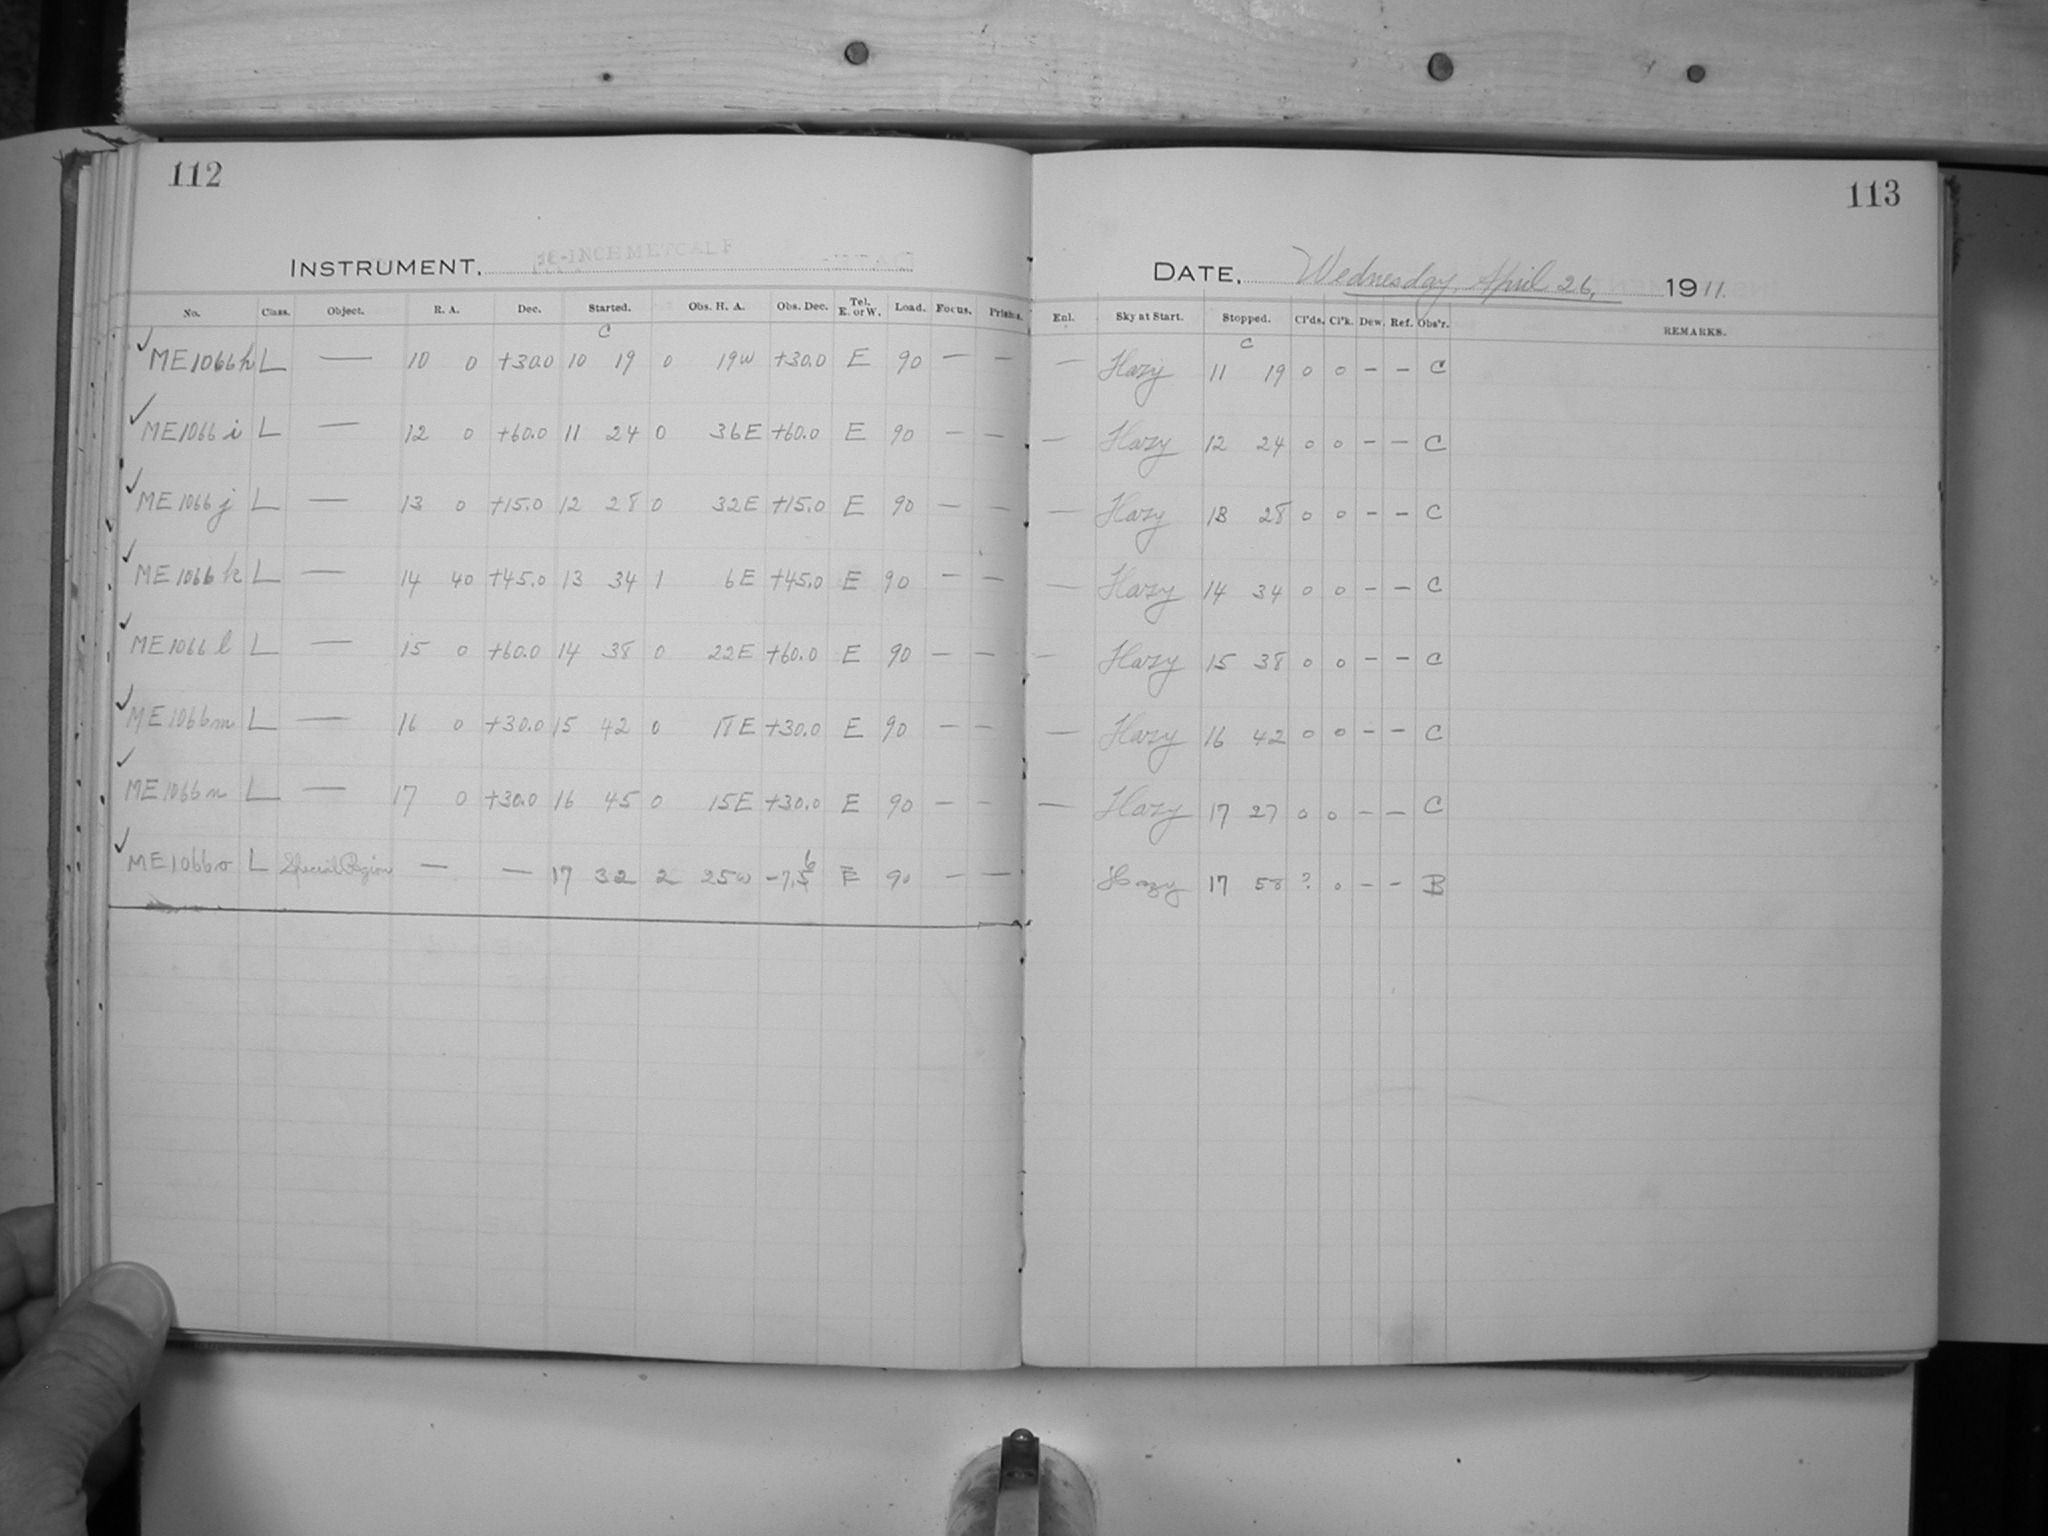 112
INSTRUMENT, 16-INCH METCALF
No. Class. Object. R. A. Dec. Started. Obs. H. A. Obs. Dec. Tel. E. or W. Load. Focus. Prisms.
C
✓ ME1066h L — 10 0 +30.0 10 19 0 19W +30.0 E 90 — —
✓ ME1066i L — 12 0 +60.0 11 24 0 36E +60.0 E 90 — —
✓ ME1066j L — 13 0 +15.0 12 28 0 32E +15.0 E 90 — —
✓ ME1066k L — 14 40 +45.0 13 34 1 6E +45.0 E 90 — —
✓ ME1066l L — 15 0 +60.0 14 38 0 22E +60.0 E 90 — —
✓ ME1066m L — 16 0 +30.0 15 42 0 18E +30.0 E 90 — —
✓ ME1066n L — 17 0 +30.0 16 45 0 15E +30.0 E 90 — —
✓ ME1066o L Special Region — — 17 32 2 25W E 90 — —
113
DATE, Wednesday, April 26, 1911.
Enl. Sky at Start. Stopped. Cl'ds. Cl'k. Dew. Ref. Obs'r. REMARKS.
C
— Hazy 11 19 0 0 — — C
— Hazy 12 24 0 0 — — C
— Hazy 13 28 0 0 — — C
— Hazy 14 34 0 0 — — C
— Hazy 15 38 0 0 — — C
— Hazy 16 42 0 0 — — C
— Hazy 17 27 0 0 — — C
Hazy 17 58 ? 0 — — B